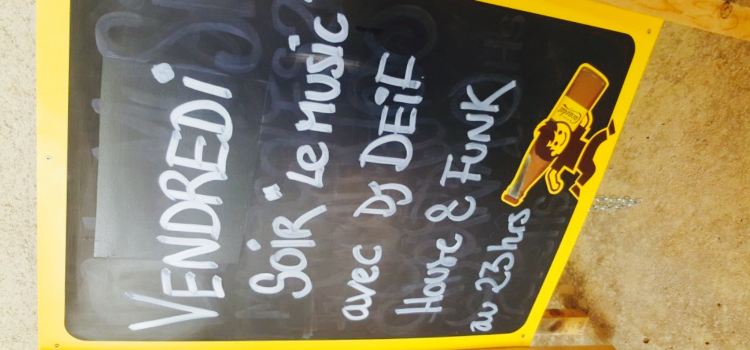 VENDREDI
SOIR LE MUSIC
avec DJ DEIF
House & FUNK
au 23hrs